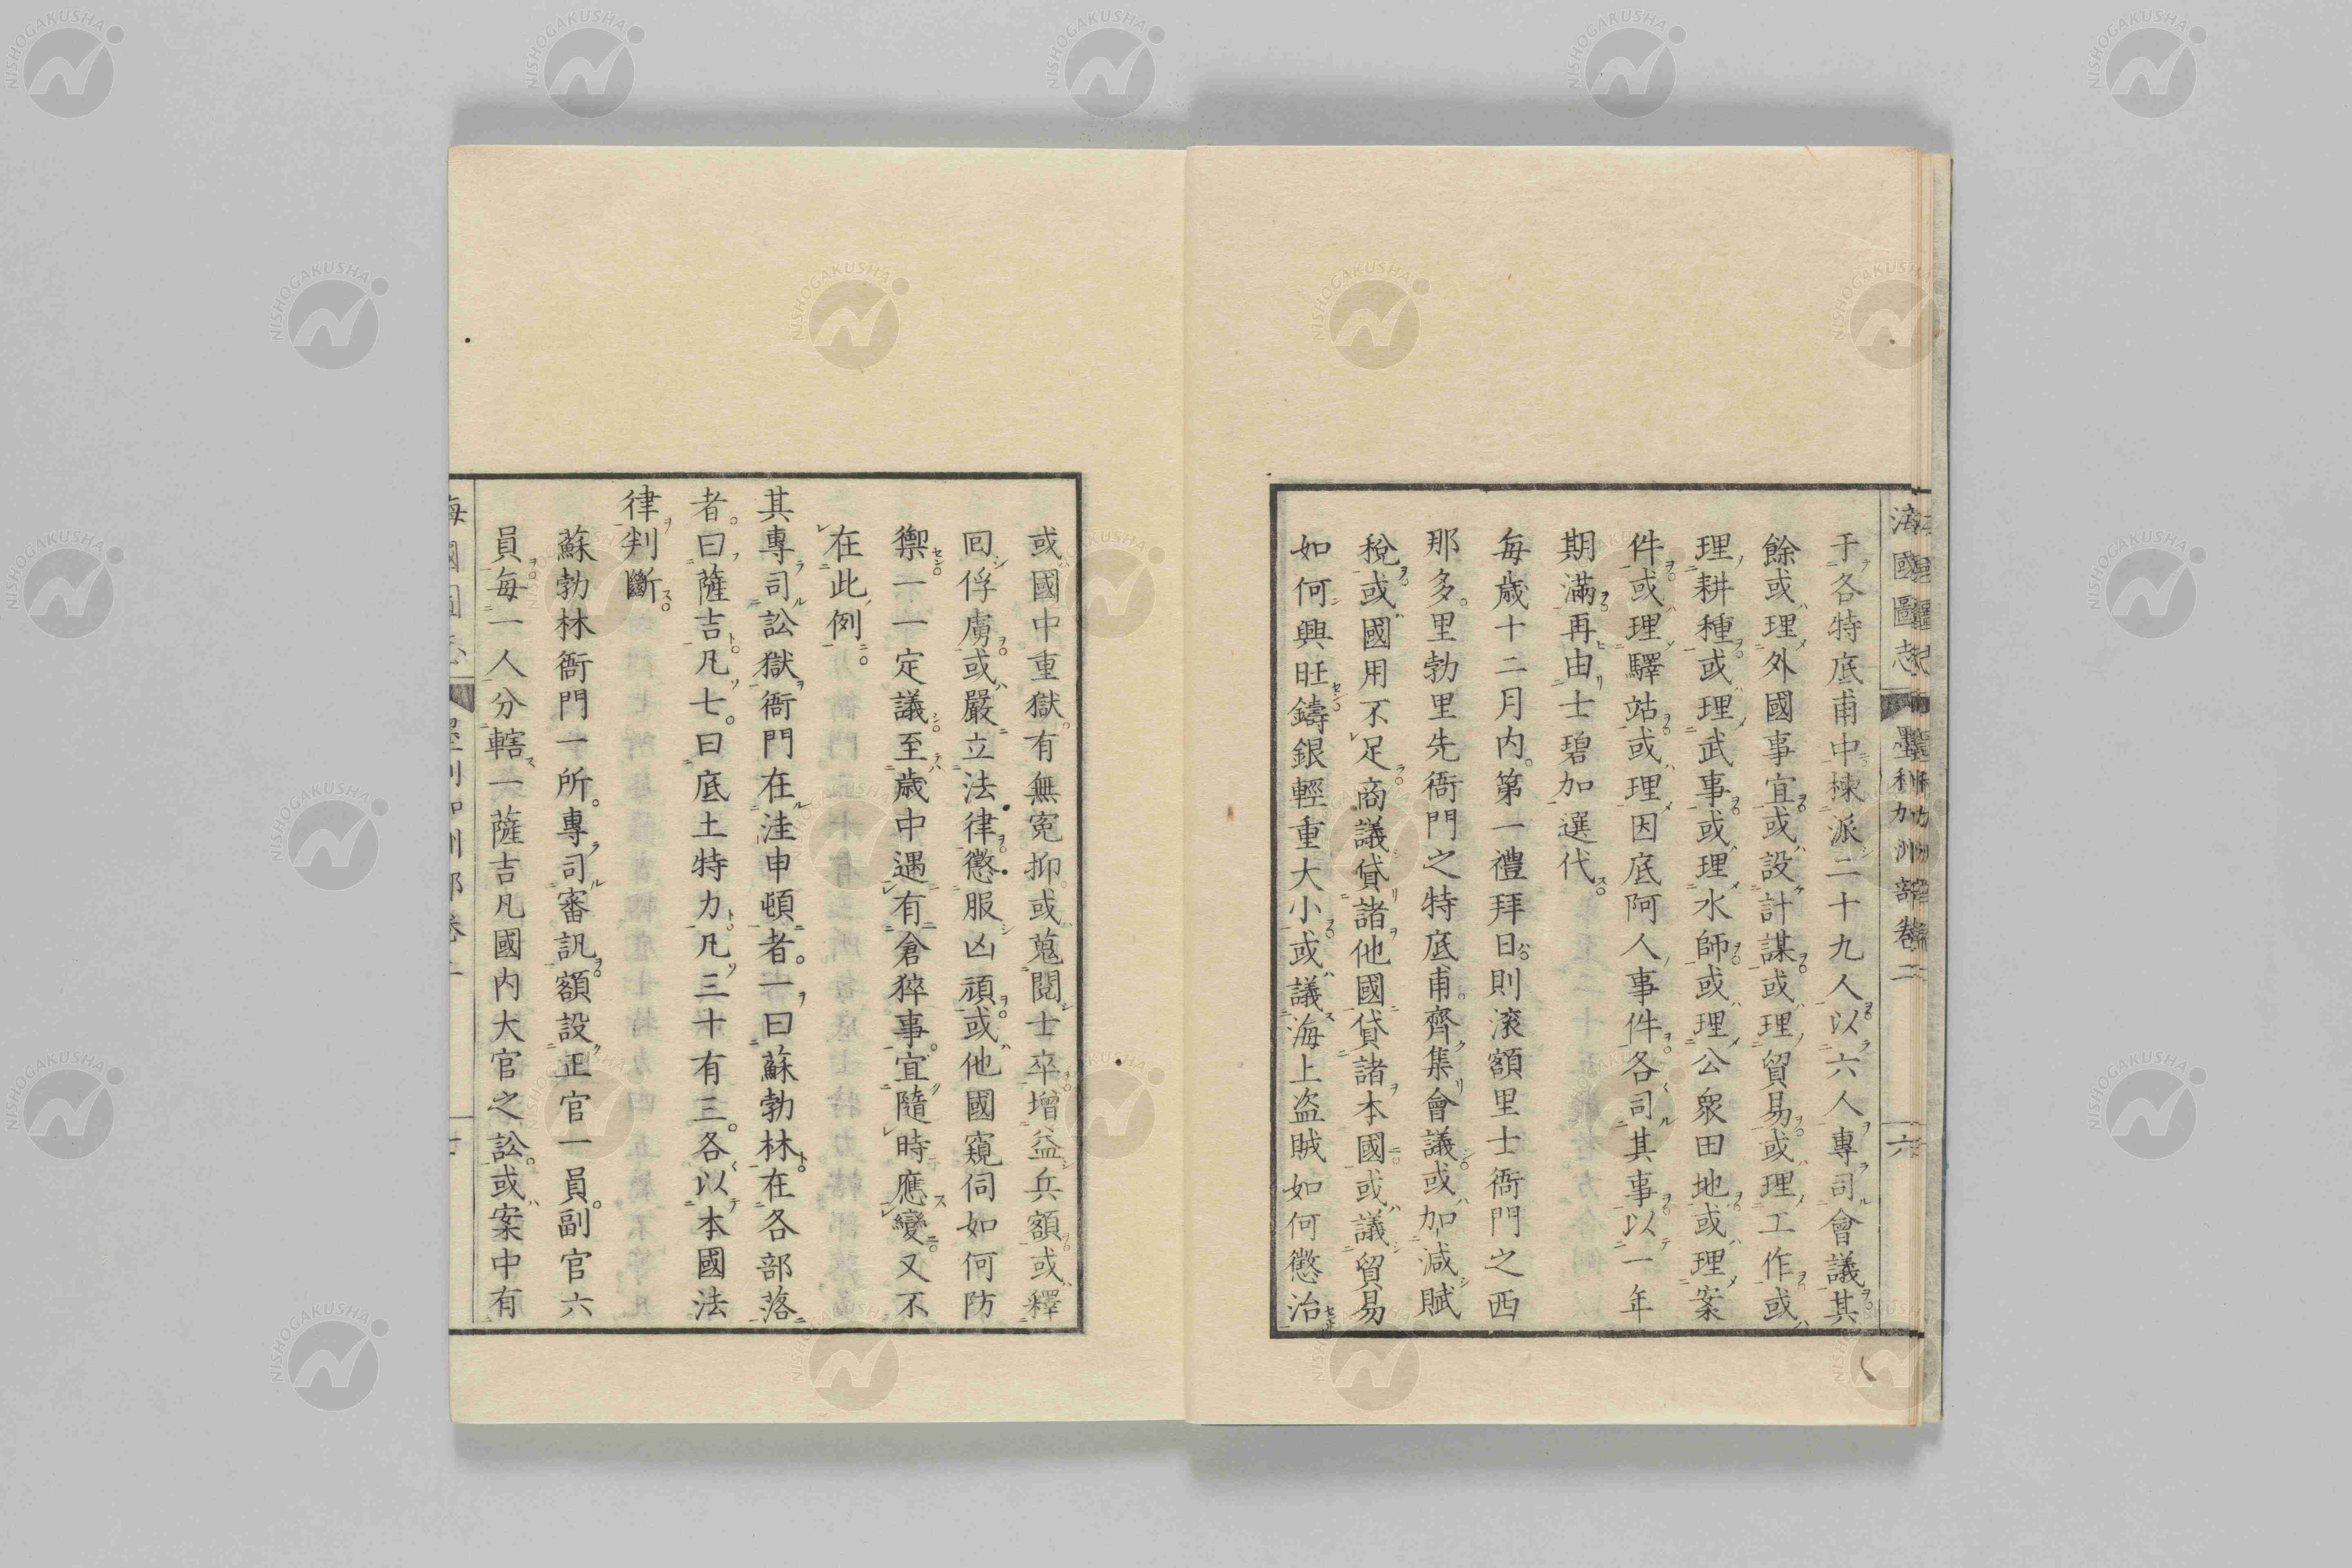 海國圖志 墨利加洲部卷二 六
于各特底甫中棟派二十九人以六人專司會議其
餘或理外國事宜或設計謀或理貿易或理工作或
理耕種或理武事或理水師或理公眾田地或理案
件或理驛站或理因底阿人事件各司其事以一年
期滿再由士碧加選代
每歲十二月內第一禮拜日則滚額里士衙門之西
那多里勃里先衙門之特底甫齊集會議或加減賦
稅或國用不足商議貸諸他國貸諸本國或議貿易
如何興旺鑄銀輕重大小或議海上盜賊如何懲治
或國中重獄有無冤抑或蒐閱士卒增益兵額或釋
回俘虜或嚴立法律懲服凶頑或他國窺伺如何防
禦一一定議至歲中遇有倉猝事宜隨時應變又不
在此例
其專司訟獄衙門在洼申頓者一曰蘇勃林在各部落
者曰薩吉凡七曰底土特力凡三十有三各以本國法
律判斷
蘇勃林衙門一所專司審訊額設正官一員副官六
員每一人分轄一薩吉凡國內大官之訟或案中有
NISHOGAKUSHA